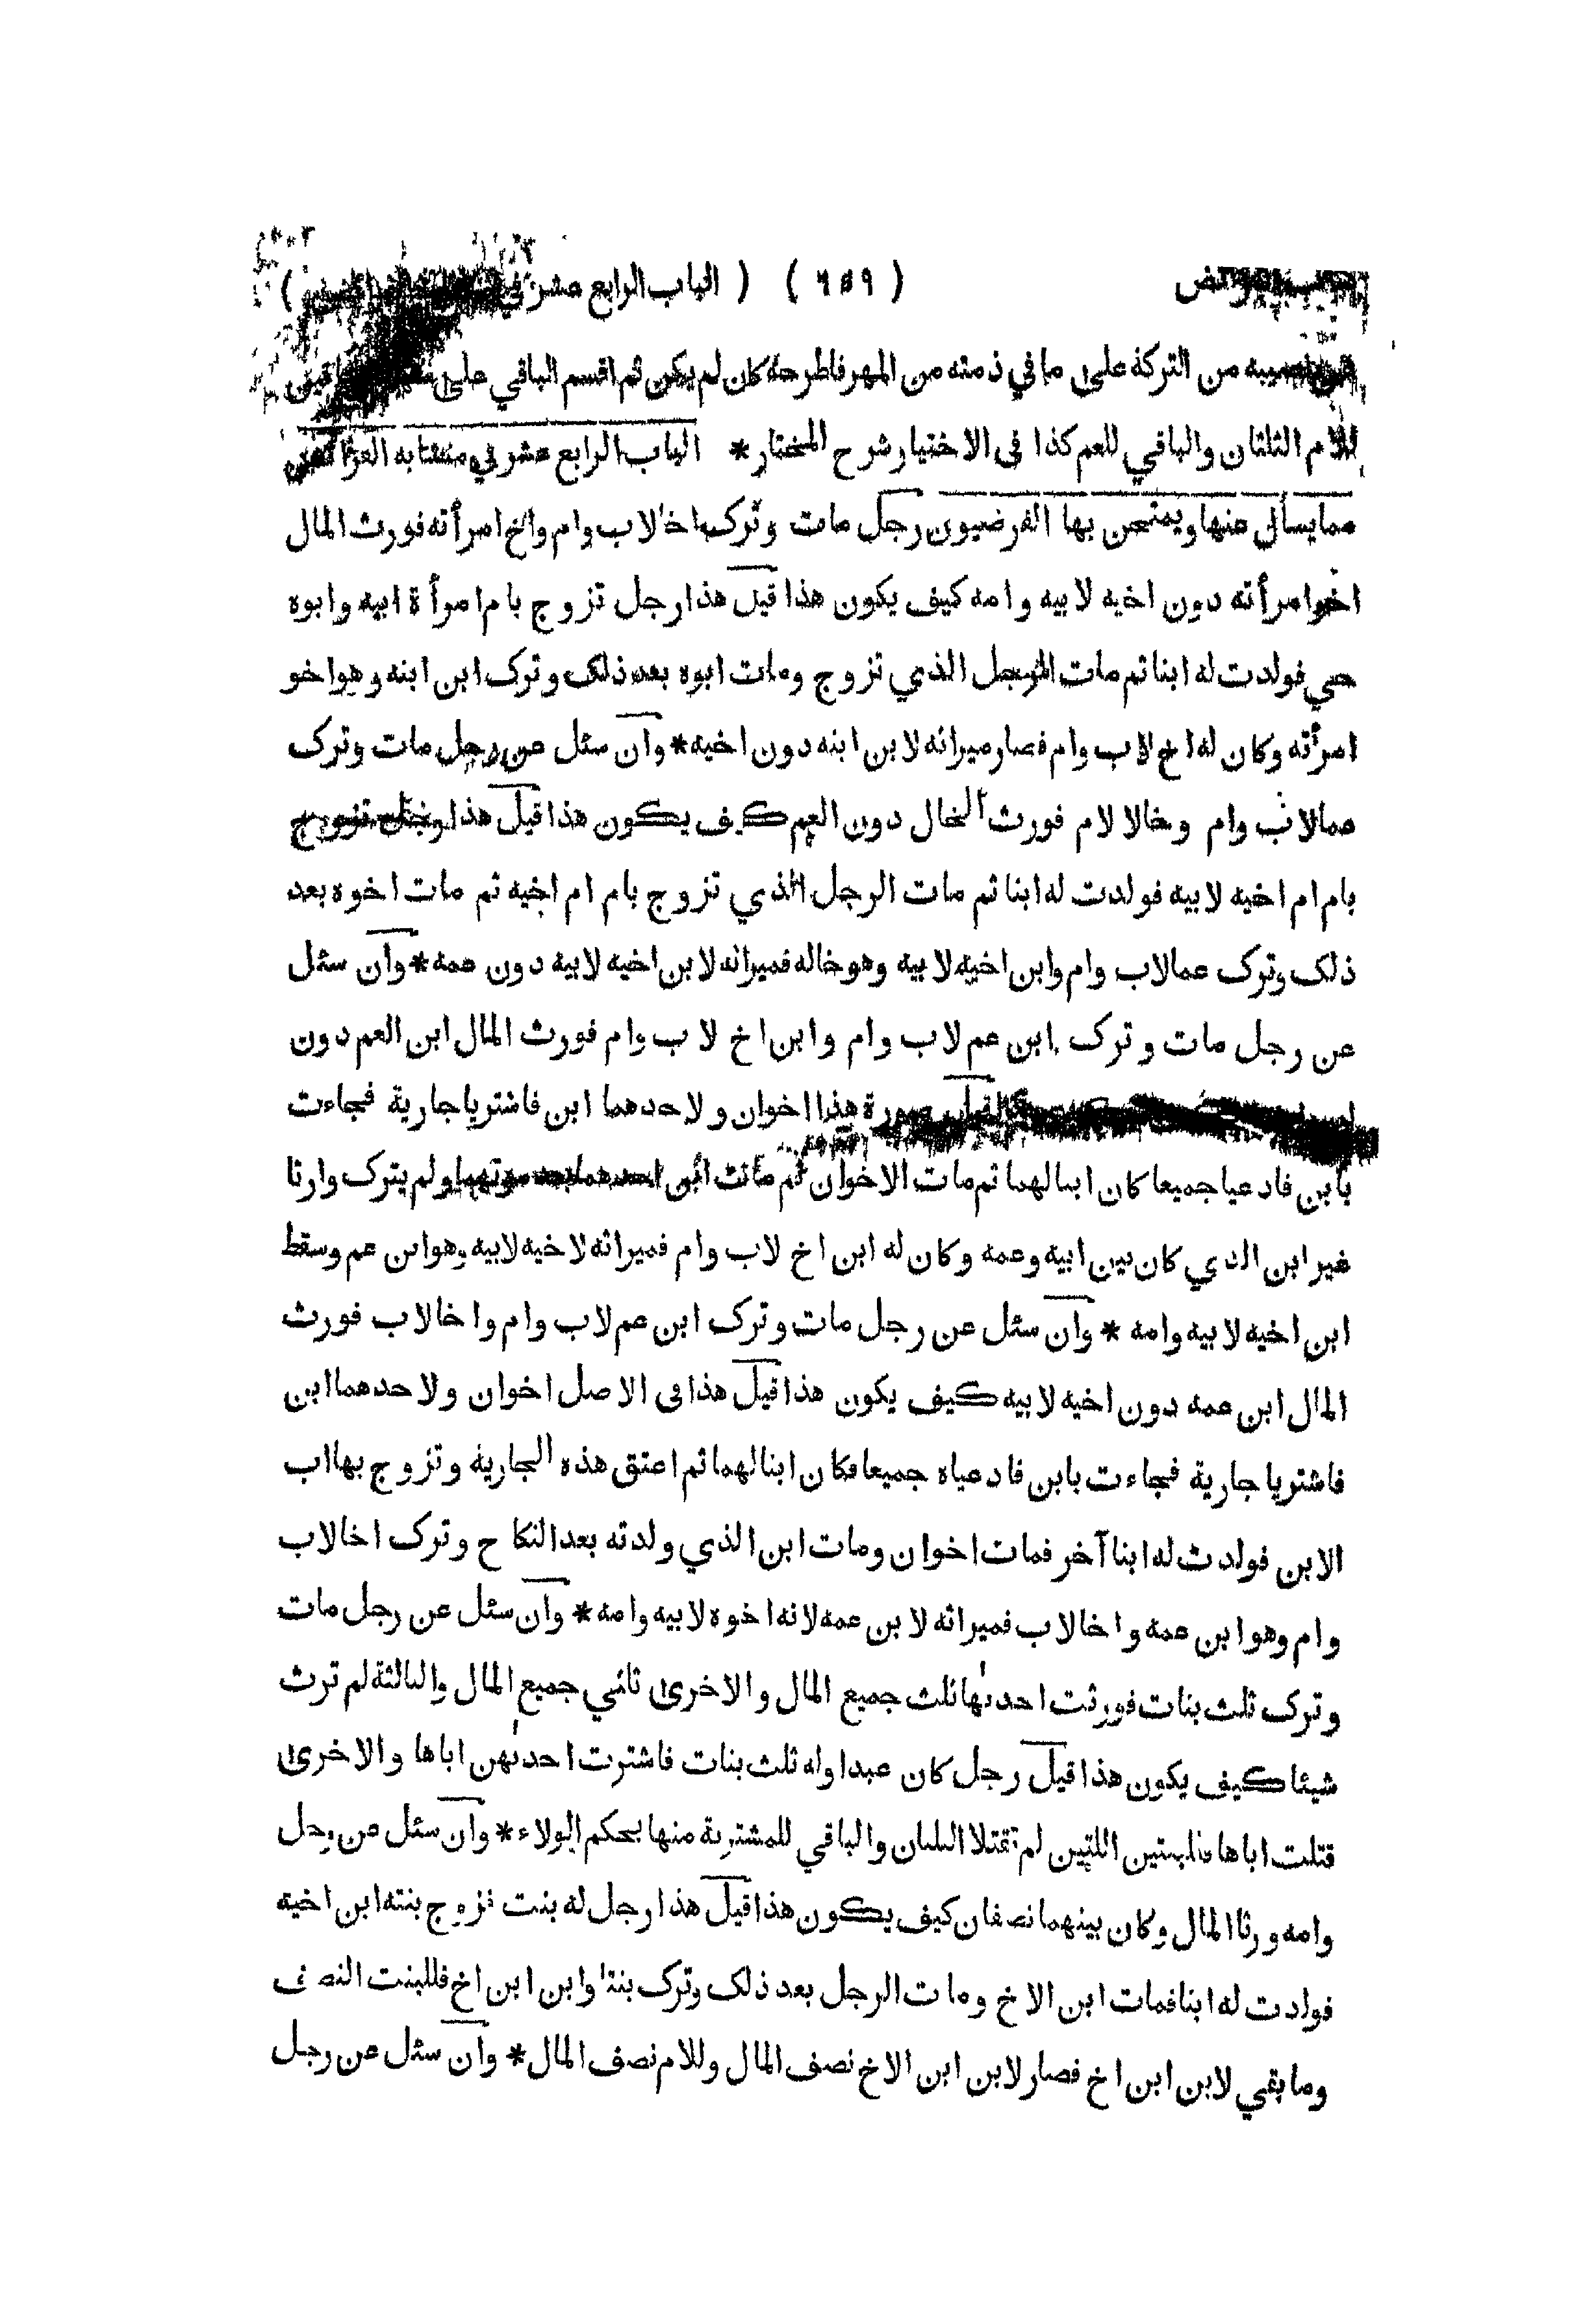 ( ٦٥٩ ) ( الباب الرابع عشر في
من التركة على ما في ذمته من المهر فاطرحه كان لم يكن ثم اقسم الباقي على
للام الثلثان والباقي للعم كذا فى الاختيار شرح المختار * الباب الرابع عشر في متشابه الفرائض
مما يسأل عنها ويمتحن بها الفرضيون رجل مات وترك اخا لاب وام واخ امرأته فورث المال
اخو امرأته دون اخيه لابيه وامه كيف يكون هذا قيل هذا رجل تزوج بام امرأة ابيه وابوه
حي فولدت له ابنا ثم مات الرجل الذي تزوج ومات ابوه بعد ذلك وترك ابن ابنه وهو اخو
امرأته وكان له اخ لاب وام فصار ميراثه لابن ابنه دون اخيه * وان سئل عن رجل مات وترك
عما لاب وام وخالا لام فورث الخال دون العم كيف يكون هذا قيل هذا رجل تزوج
بام ام اخيه لابيه فولدت له ابنا ثم مات الرجل الذي تزوج بام ام اخيه ثم مات اخوه بعد
ذلك وترك عما لاب وام وابن اخيه لابيه وهو خاله فميراثه لابن اخيه لابيه دون عمه * وان سئل
عن رجل مات وترك ابن عم لاب وام وابن اخ لاب وام فورث المال ابن العم دون
صورة هذا اخوان ولاحدهما ابن فاشتريا جارية فجاءت
بابن فادعيا جميعا كان ابنا لهما ثم مات الاخوان ثم مات ابن احدهما بعد موتهما ولم يترك وارثا
غير ابن الذي كان بين ابيه وعمه وكان له ابن اخ لاب وام فميراثه لاخيه لابيه وهو ابن عم وسقط
ابن اخيه لابيه وامه * وان سئل عن رجل مات وترك ابن عم لاب وام واخا لاب فورث
المال ابن عمه دون اخيه لابيه كيف يكون هذا قيل هذا فى الاصل اخوان ولاحدهما ابن
فاشتريا جارية فجاءت بابن فادعياه جميعا فكان ابنا لهما ثم اعتق هذه الجارية وتزوج بها اب
الابن فولدت له ابنا آخر فمات اخوان ومات ابن الذي ولدته بعد النكاح وترك اخا لاب
وام وهو ابن عمه واخا لاب فميراثه لابن عمه لانه اخوه لابيه وامه * وان سئل عن رجل مات
وترك ثلث بنات فورثت احدىها ثلث جميع المال والاخرى ثلثي جميع المال والثالثة لم ترث
شيئا كيف يكون هذا قيل رجل كان عبدا وله ثلث بنات فاشترت احدىهن اباها والاخرى
قتلت اباها فللبنتين اللتين لم تقتلا الثلثان والباقي للمشترية منها بحكم الولاء * وان سئل عن رجل
وامه ورثا المال وكان بينهما نصفان كيف يكون هذا قيل هذا رجل له بنت تزوج بنته ابن اخيه
فولدت له ابنا فمات ابن الاخ ومات الرجل بعد ذلك وترك بنتا وابن ابن اخ فللبنت النصف
وما بقي لابن ابن اخ فصار لابن ابن الاخ نصف المال وللام نصف المال * وان سئل عن رجل